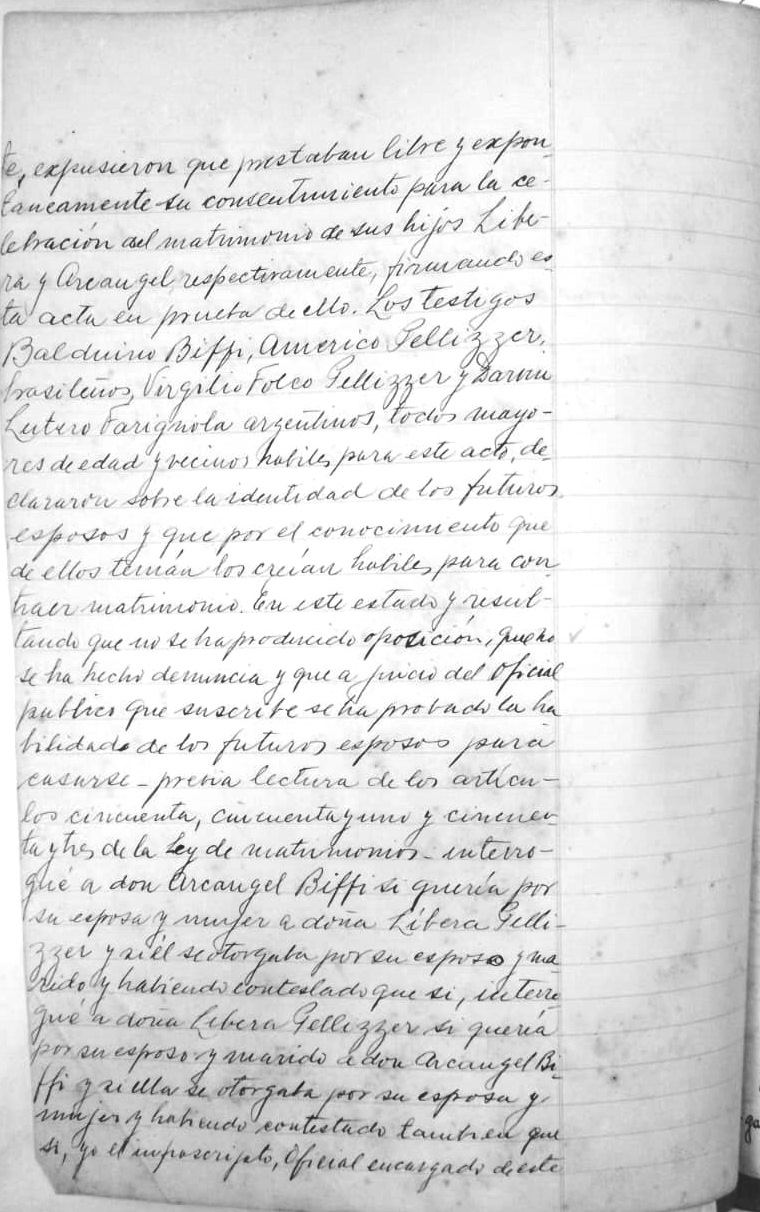 te, expusieron que prestaban libre y expon
taneamente su consentimiento para la ce-
lebración del matrimonio de sus hijos Libe-
ra y Arcangel, respectivamente, firmando es-
ta acta en prueba de ello. Los testigos
Balduino Biffi, Americo Pellizzer,
brasileños, Virgilio Folco Pellizzer y Darwin
Lutero Farignola argentinos, todos mayo-
res de edad y vecinos habiles para este acto, de
clararon sobre la identidad de los futuros
esposos y que por el conocimiento que
de ellos tenían los creían habiles para con
traer matrimonio. En este estado y resul-
tando que no se ha producido oposición, que no
se ha hecho denuncia y que a juicio del Oficial
publico que suscribe se ha probado la ha
bilidad de los futuros esposos para
casarse - previa lectura de los artícu-
los cincuenta, cincuenta y uno y cincuen
ta y tres de la Ley de matrimonios - interro-
gué a don Arcangel Biffi si quería por
su esposa y mujer a doña Libera Pelli-
zzer y si él se otorgaba por su esposo y ma
rido y habiendo contestado que si, interro
gué a doña Libera Pellizzer si quería
por su esposo y marido a don Arcangel Bi-
ffi y si ella se otorgaba por su esposa y
mujer y habiendo contestado tambien que
si, yo el infrascripto, Oficial encargado de este